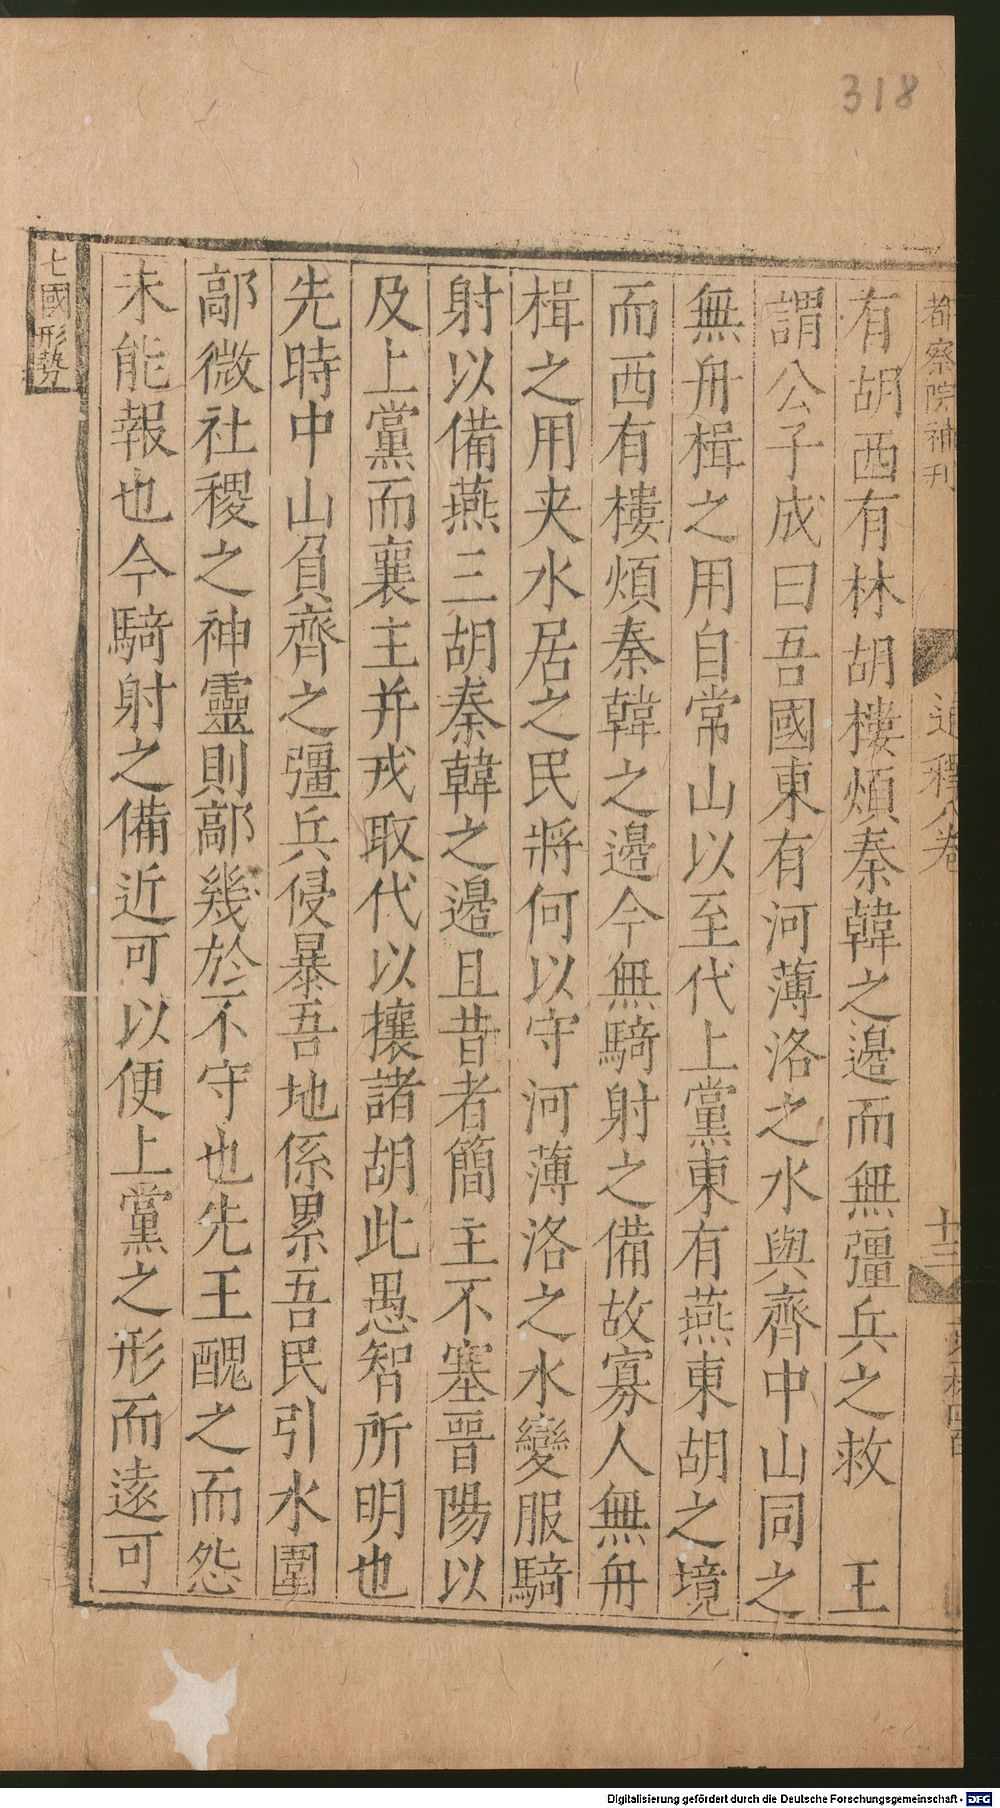 318
都察院補刊
通釋八卷
十三
有胡西有林胡樓煩秦韓之邊而無彊兵之救　王
謂公子成曰吾國東有河薄洛之水與齊中山同之
無舟楫之用自常山以至代上黨東有燕東胡之境
而西有樓煩秦韓之邊今無騎射之備故寡人無舟
楫之用夹水居之民將何以守河薄洛之水變服騎
射以備燕三胡秦韓之邊且昔者簡主不塞晉陽以
及上黨而襄主并戎取代以攘諸胡此愚智所明也
先時中山負齊之彊兵侵暴吾地係累吾民引水圍
鄗微社稷之神靈則鄗幾於不守也先王醜之而怨
未能報也今騎射之備近可以便上黨之形而遠可
七國形勢
Digitalisierung gefördert durch die Deutsche Forschungsgemeinschaft - DFG